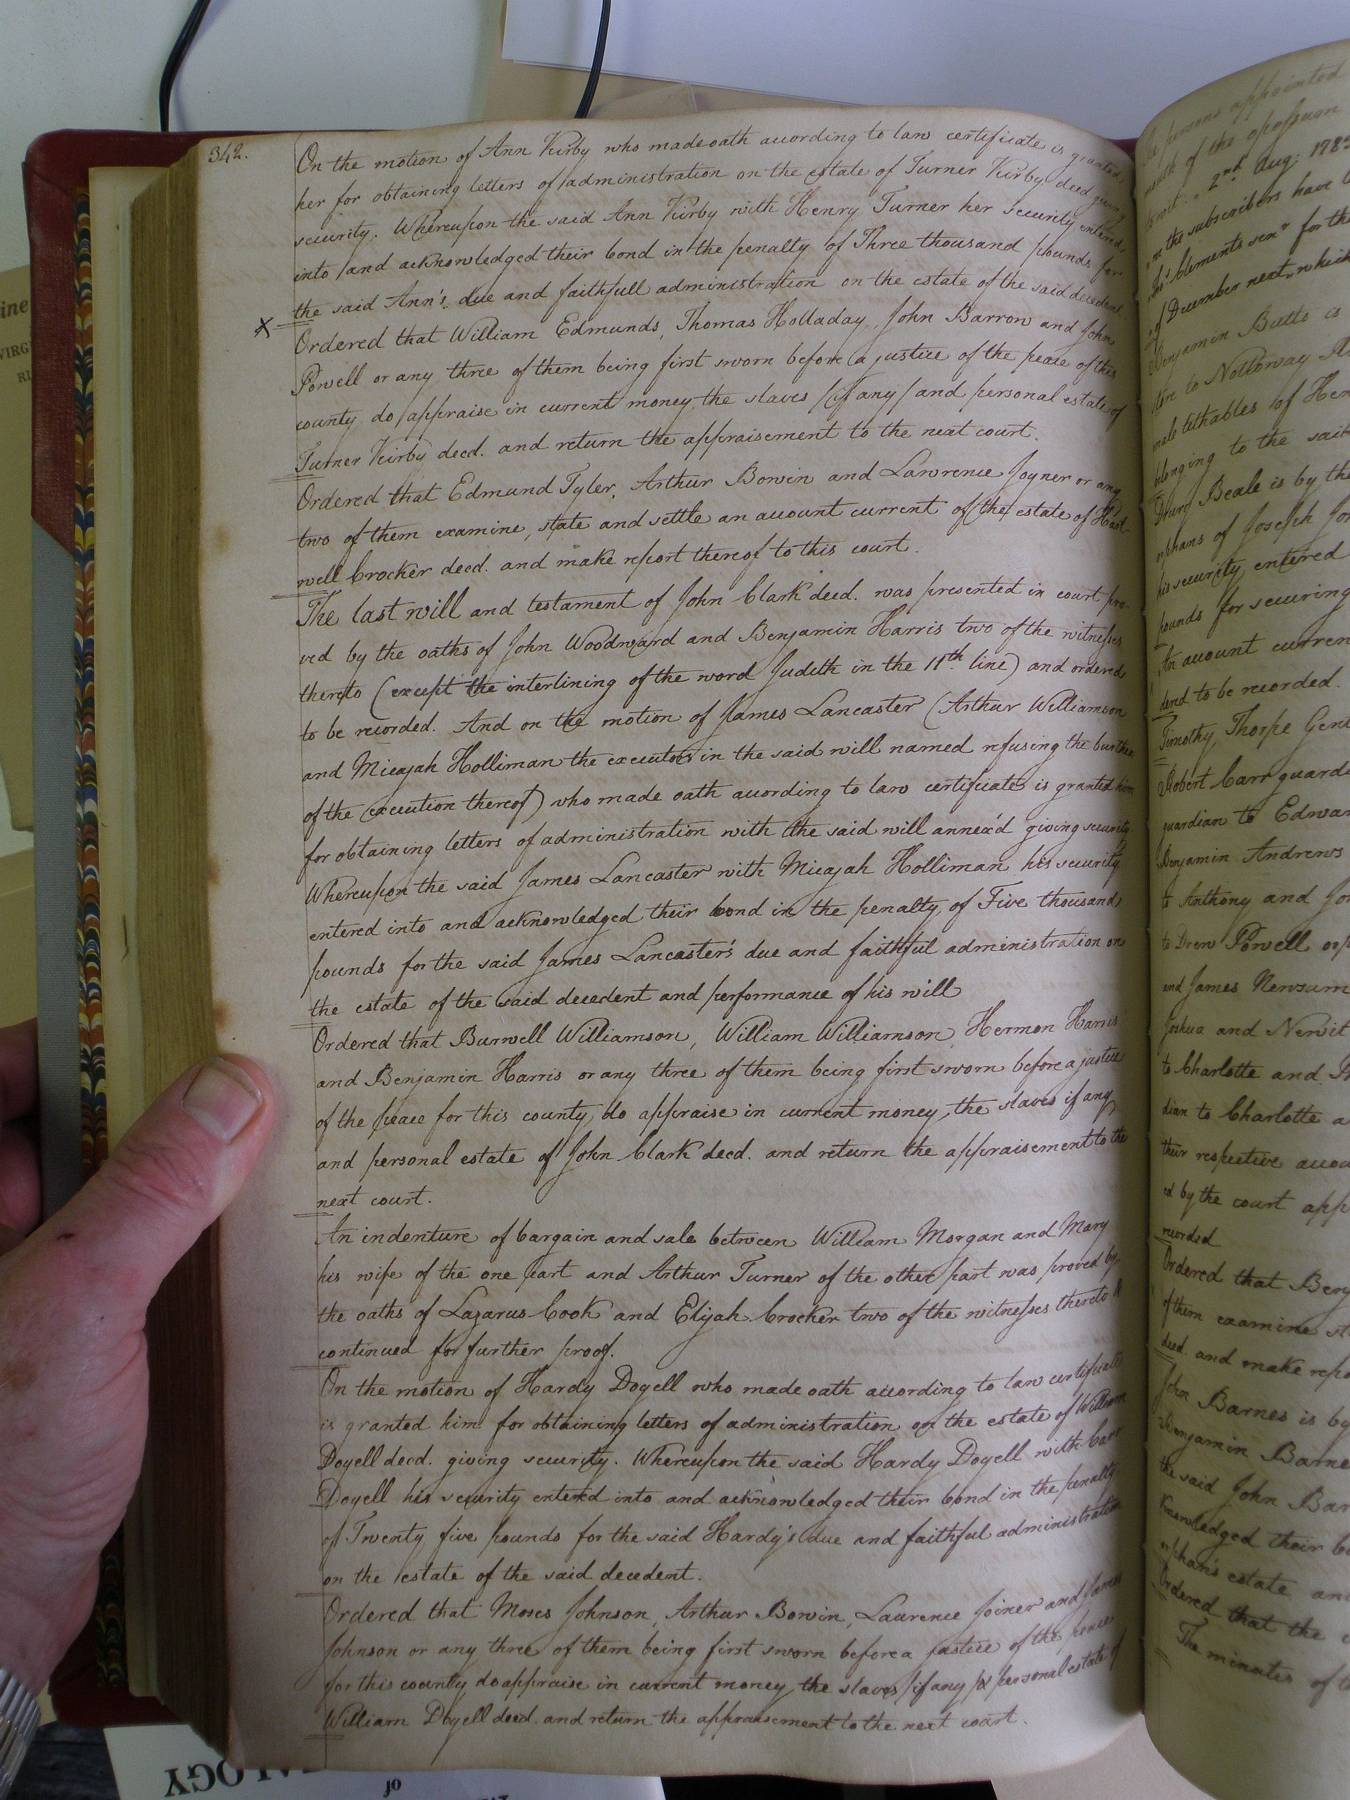 342.
On the motion of Ann Kirby who made oath according to law certificate is granted
her for obtaining letters of administration on the estate of Turner Kirby deed giving
security. Whereupon the said Ann Kirby with Henry Turner her security entered
into and acknowledged their bond in the penalty of Three thousand pounds for
the said Ann's due and faithfull administration on the estate of the said decedent
X Ordered that William Edmunds, Thomas Holladay, John Barrow and John
Powell or any three of them being first sworn before a justice of the peace of this
county do appraise in current money the slaves (if any) and personal estate of
Turner Kirby deed. and return the appraisement to the next court.
Ordered that Edmund Tyler, Arthur Bowin and Lawrence Joyner or any
two of them examine, state and settle an account current of the estate of
well Crocker deed. and make report thereof to this court.
The last will and testament of John Clark deed. was presented in court pro-
ved by the oaths of John Woodward and Benjamin Harris two of the witnesses
thereto (except the interlining of the word Judith in the 11th. line) and ordered
to be recorded. And on the motion of James Lancaster (Arthur Williamson
and Micajah Holliman the executors in the said will named refusing the burthen
of the execution thereof) who made oath according to law certificate is granted him
for obtaining letters of administration with the said will annex'd giving security
Whereupon the said James Lancaster with Micajah Holliman his security
entered into and acknowledged their bond in the penalty of Five thousand
pounds for the said James Lancaster's due and faithful administration on
the estate of the said decedent and performance of his will
Ordered that Burwell Williamson, William Williamson, Hermon Harris
and Benjamin Harris or any three of them being first sworn before a justice
of the peace for this county do appraise in current money the slaves if any
and personal estate of John Clark deed. and return the appraisement to the
next court.
An indenture of bargain and sale between William Morgan and Mary
his wife of the one part and Arthur Turner of the other part was proved by
the oaths of Lazarus Cook and Elijah Crocker two of the witnesses thereto &
continued for further proof.
On the motion of Hardy Doyell who made oath according to law certificate
is granted him for obtaining letters of administration on the estate of William
Doyell deed. giving security. Whereupon the said Hardy Doyell with
Doyell his security entered into and acknowledged their bond in the penalty
of Twenty five pounds for the said Hardy's due and faithful administration
on the estate of the said decedent.
Ordered that Moses Johnson, Arthur Bowin, Laurence Joiner and James
Johnson or any three of them being first sworn before a justice of the peace
for this county do appraise in current money the slaves if any & personal estate of
William Doyell deed. and return the appraisement to the next court.
persons appointed
2nd. Aug: 178
the subscribers have
Clements senr for the
of December next, which
Benjamin Butts is
to Nottoway
male tithables of Hen
belonging to the said
Drury Beale is by the
orphans of Joseph
his security entered
pounds for securing
An account curren
to be recorded.
Timothy Thorpe Gent
Robert Carr guard
guardian to Edwar
Benjamin Andrews
to Anthony and
to Drew Powell
and James Newsum
Joshua and Newit
to Charlotte and
dian to Charlotte
their respective
ed by the court
recorded
Ordered that Ben
of them examine
deed. and make repo
John Barnes is by
Benjamin Barne
the said John Bar
knowledged their
orphan's estate and
Ordered that the
The minutes of